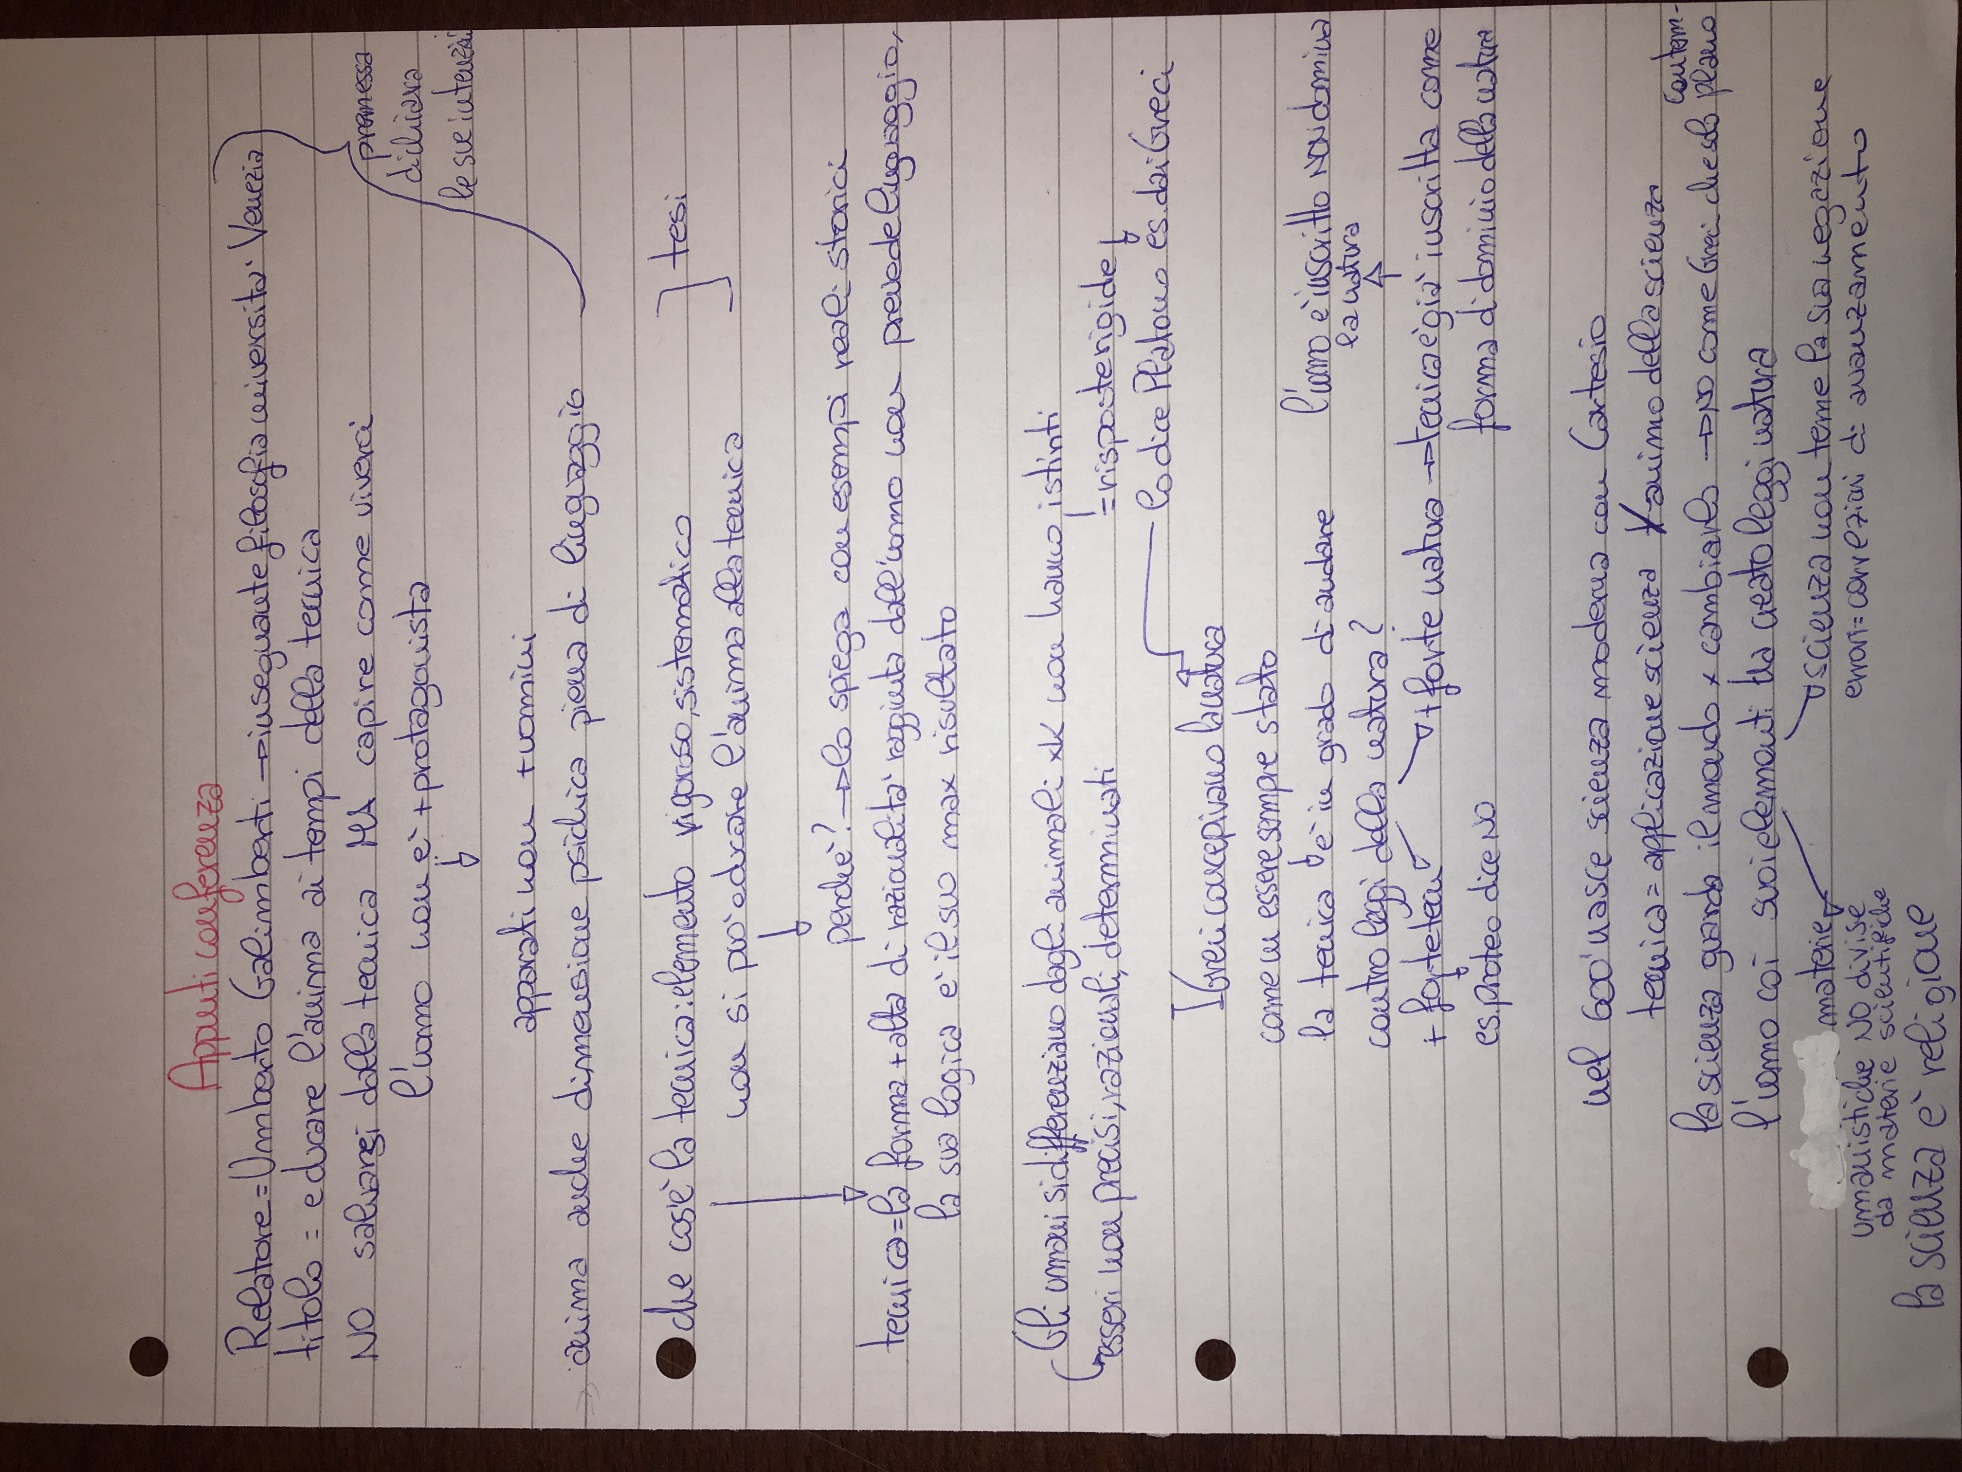 Appunti conferenza
Relatore = Umberto Galimberti → insegnante filosofia università Venezia
titolo = educare l'anima ai tempi della tecnica
premessa
dichiara
le sue intenzioni
NO salvarsi dalla tecnica MA capire come viverci
l'uomo non è + protagonista
apparati non + uomini
anima anche dimensione psichica piena di linguaggio
che cos'è la tecnica: elemento vigoroso, sistematico
non si può educare l'anima alla tecnica
tesi
perché? → lo spiega con esempi reali storici
tecnica = la forma + alta di razionalità raggiunta dall'uomo non prevede linguaggio,
la sua logica è il suo max risultato
Gli umani si differenziano dagli animali xk non hanno istinti
esseri non precisi, razionali, determinati
= risposte rigide
lo dice Platone es. dai Greci
I Greci concepivano la natura
come un essere sempre stato
l'uomo è inscritto NON domina
la natura
la tecnica è in grado di andare
contro leggi della natura?
+ forte natura → tecnica è già inscritta come
forma di dominio della natura
+ forte tecn
es. Proteo dice NO
nel 600' nasce scienza moderna con Cartesio
tecnica = applicazione scienza / animo della scienza
la scienza guarda il mondo x cambiarlo → NO come Greci che solo contem-
plano
l'uomo coi suoi elementi ha creato leggi natura
scienza non teme la sua negazione
errori = correzioni di avanzamento
materie
umanistiche NO divise
da materie scientifiche
la scienza è religione